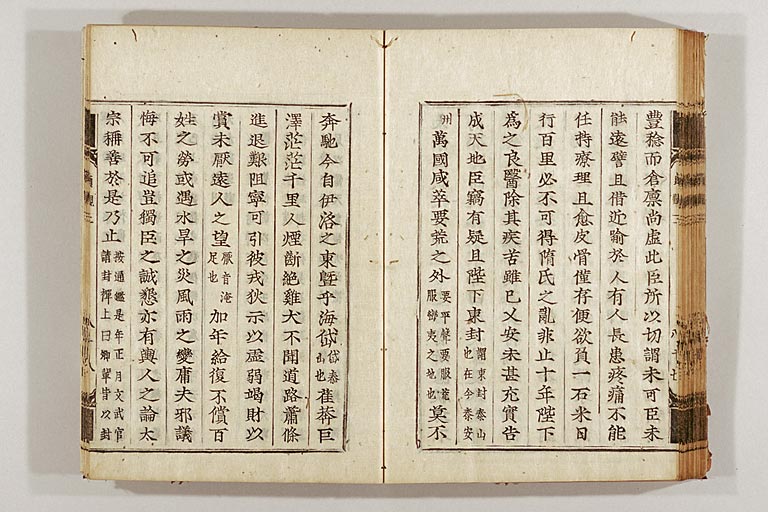 豐稔而倉廩尚虛此臣所以切謂未可臣未
能遠譬且借近喻於人有人長患疼痛不能
任持療理且愈皮骨僅存便欲負一石米日
行百里必不可得隋氏之亂非止十年陛下
爲之良醫除其疾苦雖已乂安未甚充實告
成天地臣竊有疑且陛下東封謂東封泰山也在今泰安
州萬國咸萃要荒之外要平聲要服荒服蠻夷之地也莫不
奔馳今自伊洛之東曁乎海岱岱泰山也萑莽巨
澤茫茫千里人煙斷絶雞犬不聞道路蕭條
進退艱阻寧可引彼戎狄示以虛弱竭財以
賞未厭遠人之望厭音淹足也加年給復不償百
姓之勞或遇水旱之災風雨之變庸夫邪議
悔不可追豈獨臣之誠懇亦有輿人之論太
宗稱善於是乃止按通鑑是年正月文武官請封禪上曰卿輩皆以封